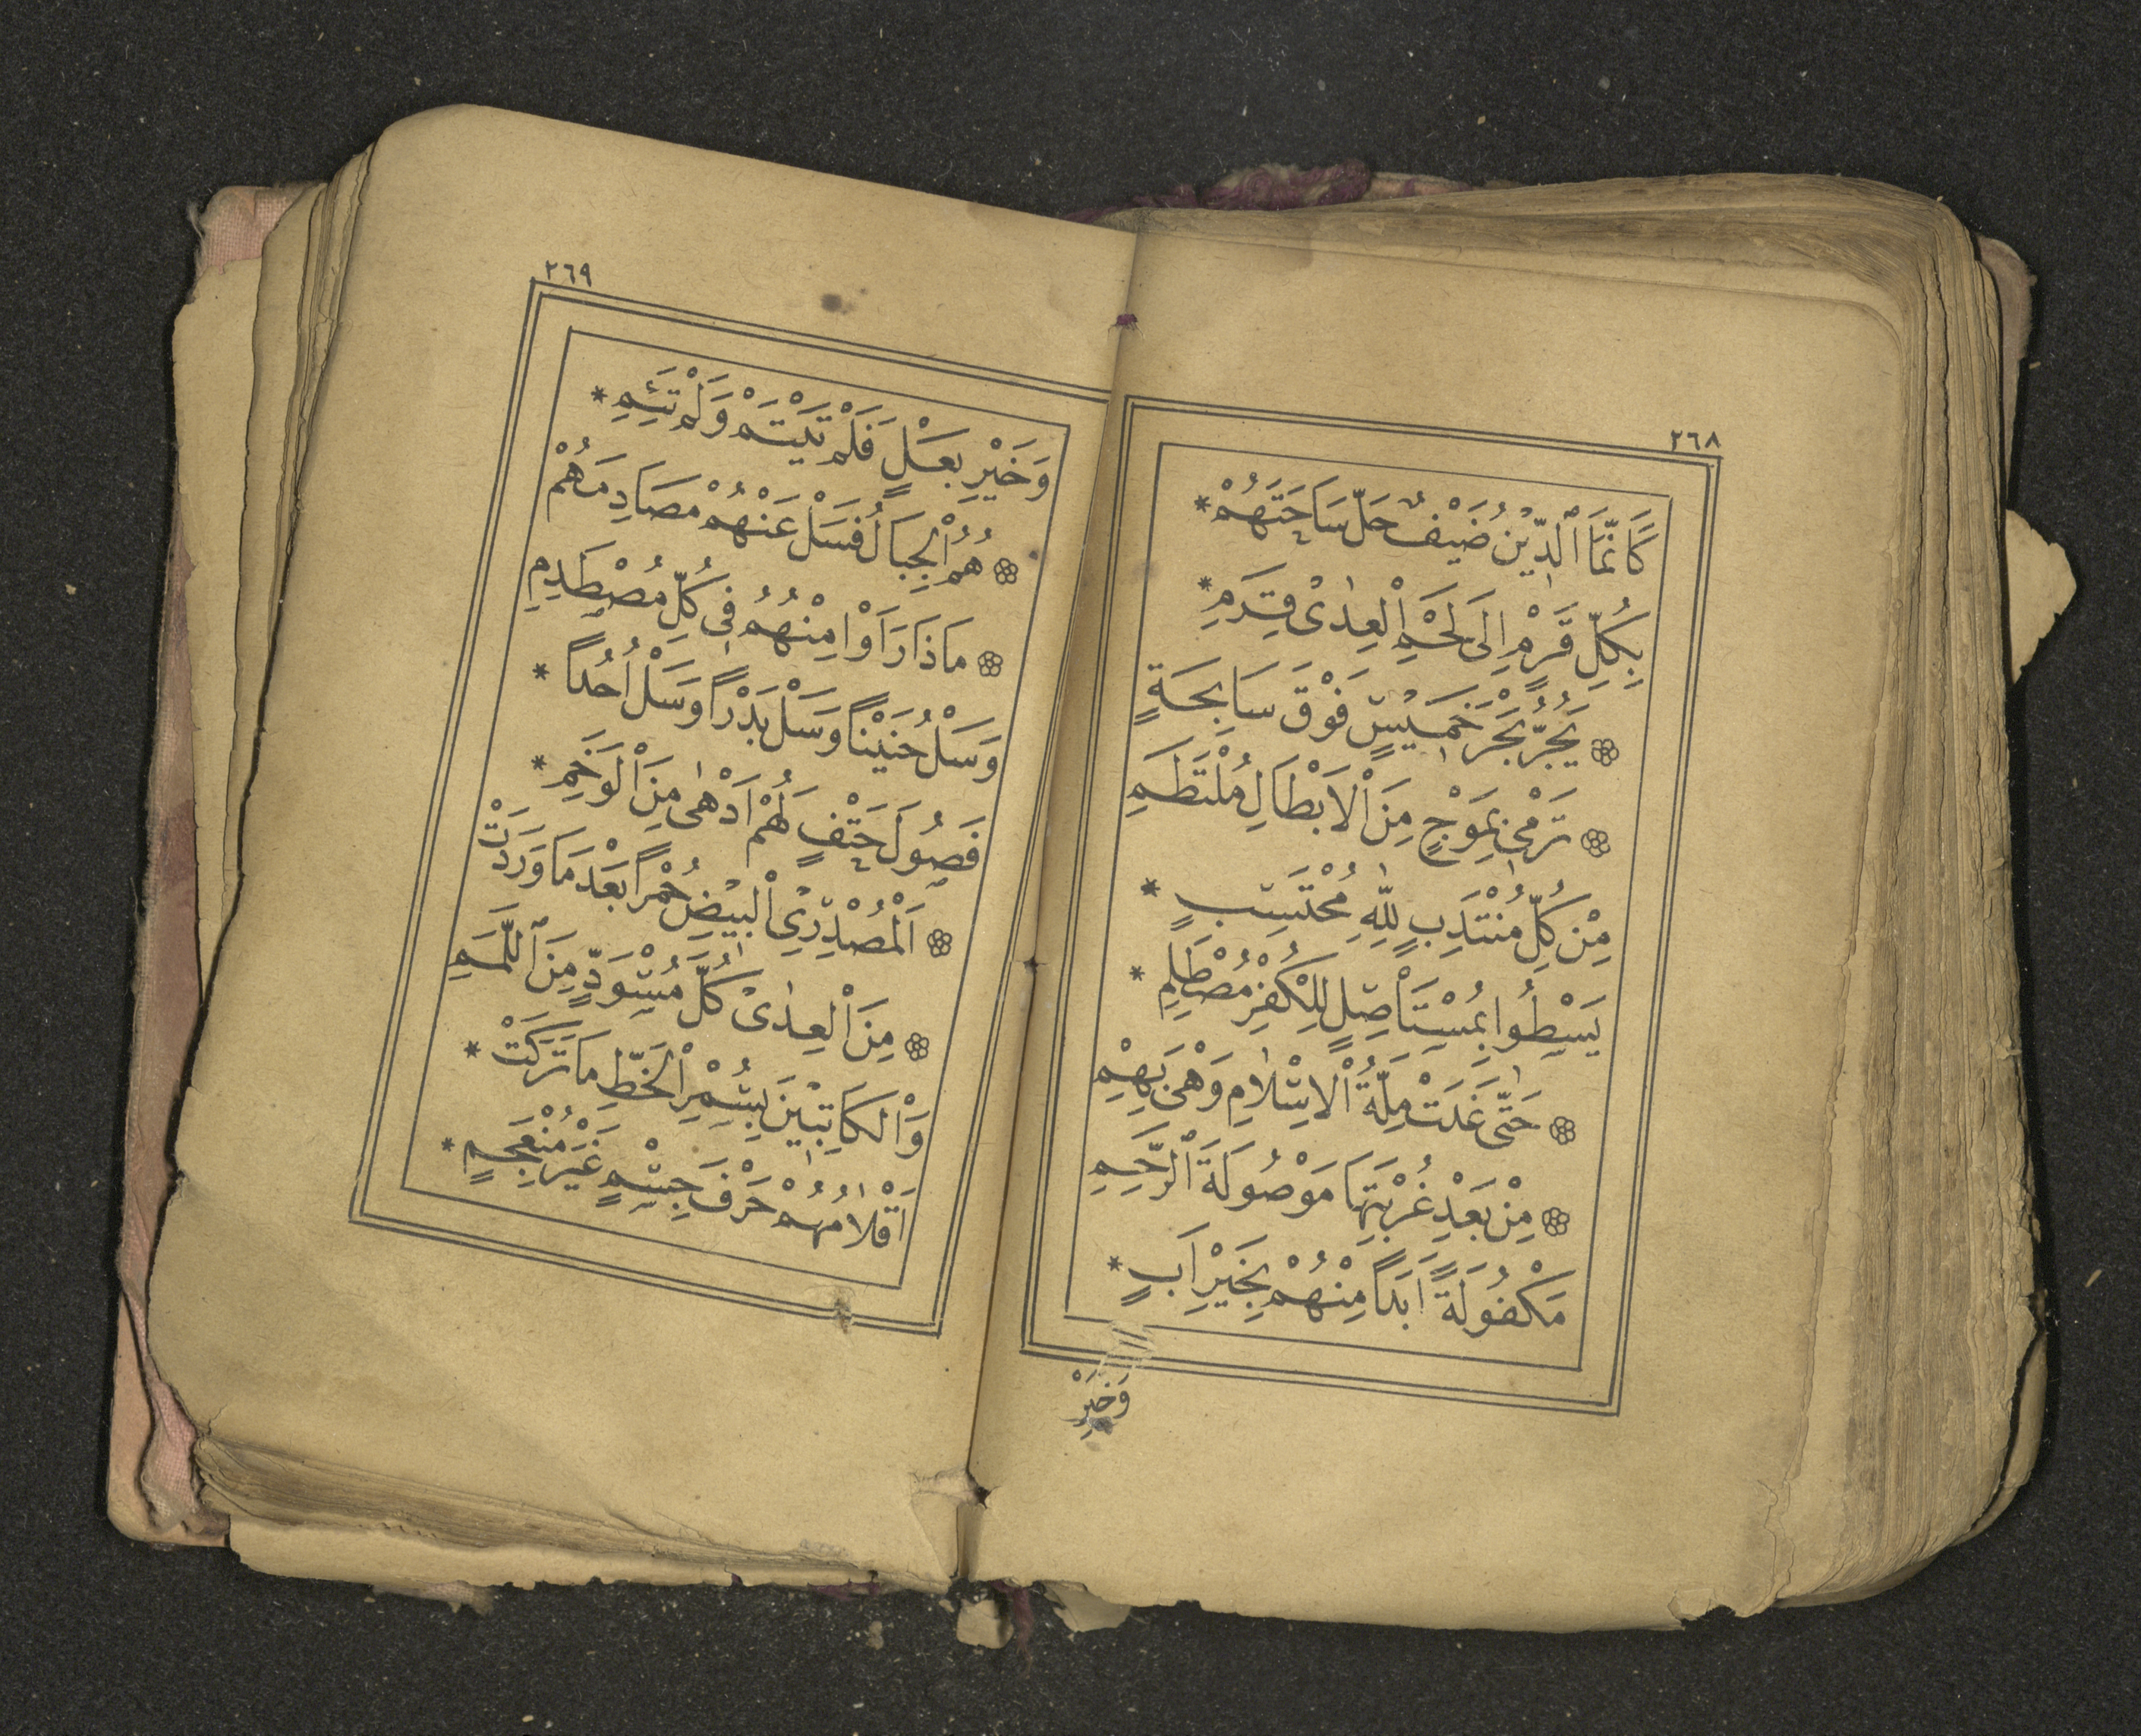 ٢٦٨
كَاَنَّمَا ٱلدّ۪ينُ ضَيْفٌ حَلَّ سَاحَتَهُمْ *
بِكُلِّ قَرْمٍ اِلَى لَحْمِ اْلعِدٰى قَرِمِ *
يَجُرُّ بَحْرَ خَم۪يسٍ فَوْقَ سَابِحَةٍ
تَرْم۪ى بِمَوْجٍ مِنَ اْلاَبْطَالِ مُلْتَطِمِ
مِنْ كُلِّ مُنْتَدِبٍ لِلّٰهِ مُحْتَسِبٍ *
يَسْطُوا بِمُسْتَأْصِلٍ لِلْكُفْرِ مُصْطَلِمِ *
حَتّٰى غَدَتْ مِلَّةُ اْلاِسْلاٰمِ وَهْىَ بِهِمْ
مِنْ بَعْدِ غُرْبَتِهَا مَوْصُولَةَ ٱلرَّحِمِ
مَكْفُولَةً اَبَدًا مِنْهُمْ بِخَيْرِ اَبٍ *
وَخَيْرِ
٢٦٩
وَخَيْرِ بَعْلٍ فَلَمْ تَيْتَمْ وَلَمْ تَئِمِ *
هُمُ اْلجِبَالُ فَسَلْ عَنْهُمْ مُصَادِمَهُمْ
مَاذَا رَاَوْا مِنْهُمُ ف۪ى كُلِّ مُصْطَدِمِ
وَسَلْ حُنَيْنًا وَسَلْ بَدْرًا وَسَلْ اُحُدًا *
فَصُولَ حَتْفٍ لَهُمْ اَدْهٰى مِنَ اْلوَخَمِ *
اَلْمُصْدِرِى اْلب۪يضِ حُمْرًا بَعْدَ مَا وَرَدَتْ
مِنَ اْلعِدٰى كُلَّ مُسْوَدٍّ مِنَ ٱللِّمَمِ
وَاْلكَاتِب۪ينَ بِسُمْرِ اْلخَطِّ مَا تَرَكَتْ *
اَقْلاٰمُهُمْ حَرْفَ جِسْمٍ غَيْرَ مُنْعَجِمٍ *